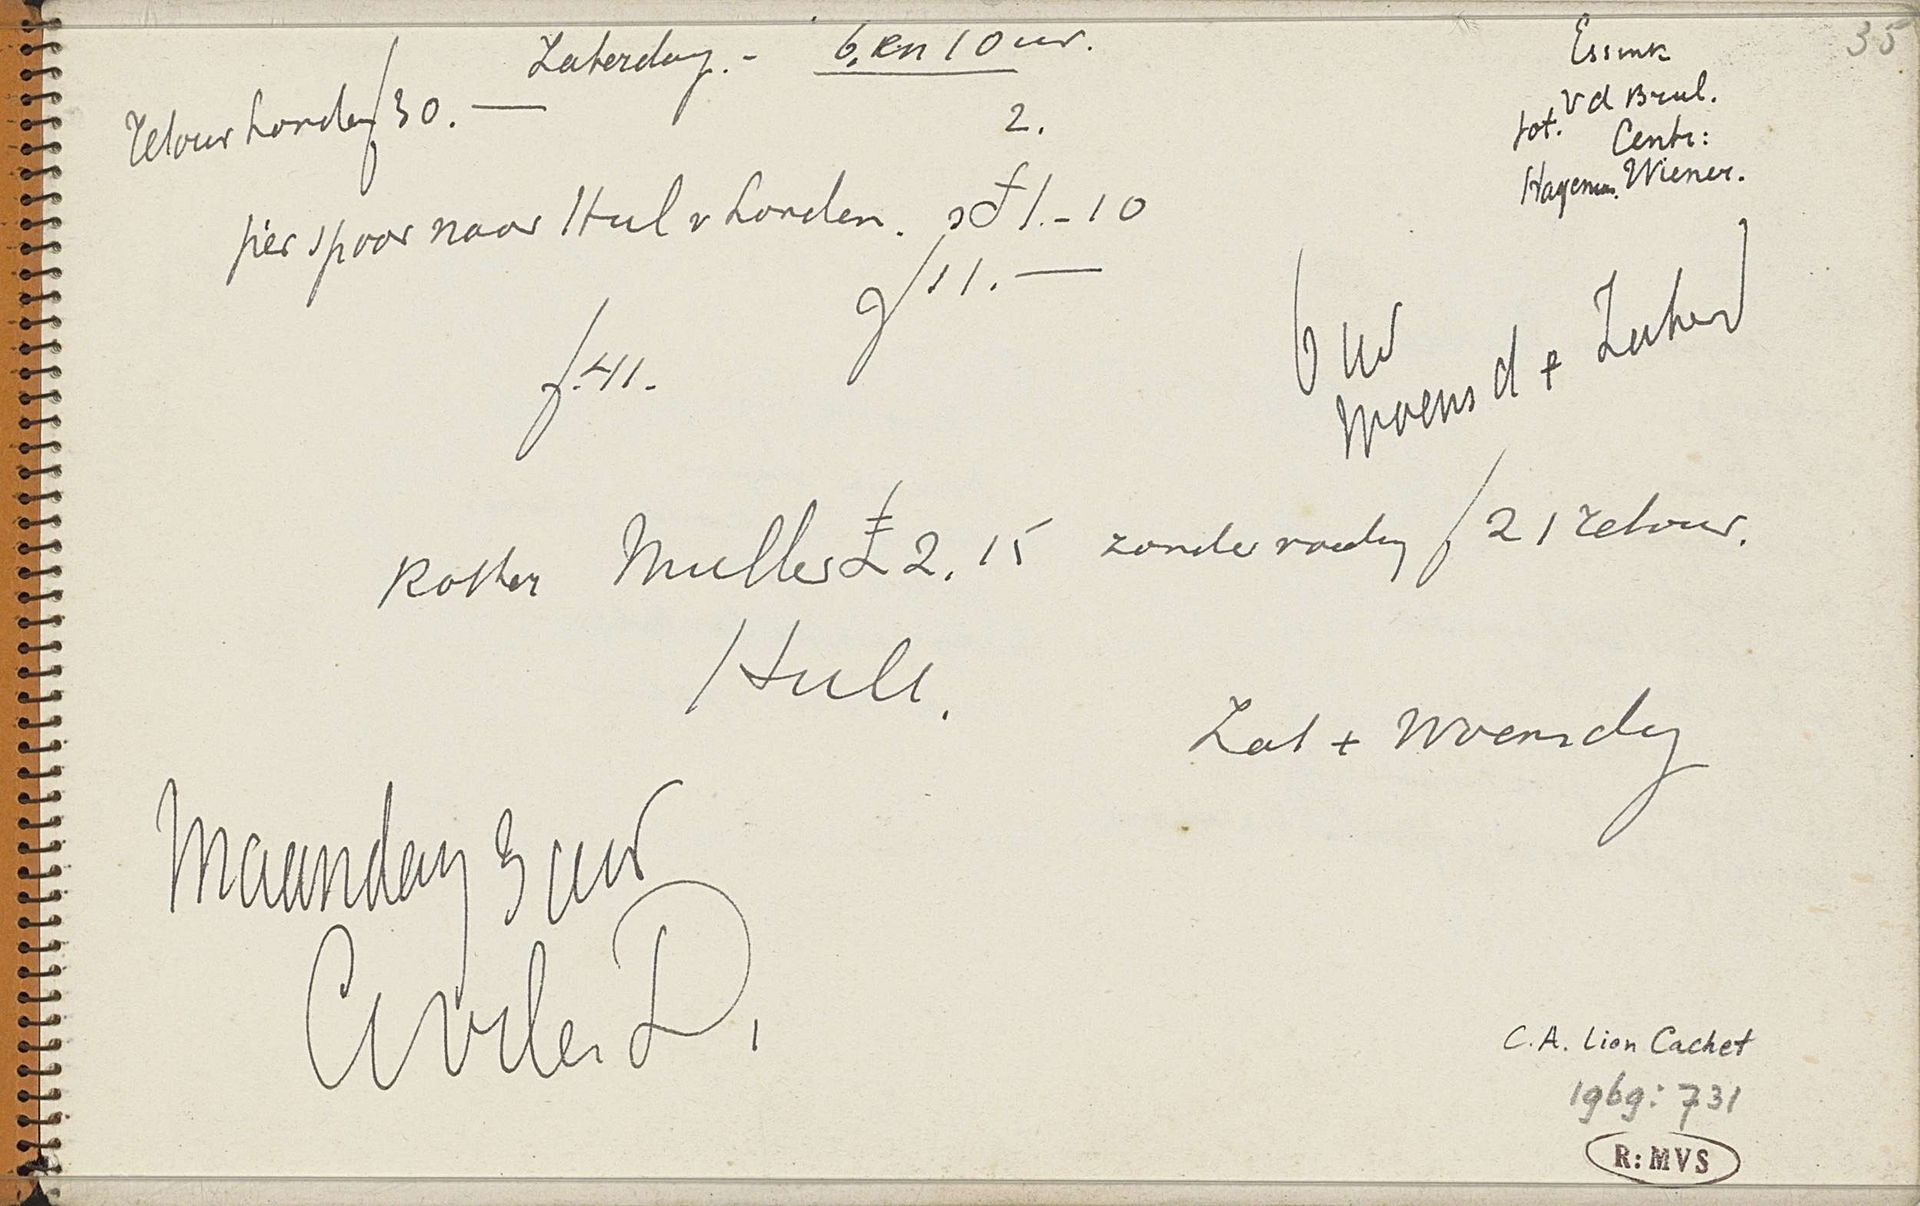 Zaterdag. - 6. en 10 uur.
retour Londen ƒ 30. —
2.
per spoor naar Hul v Londen. £ 1.-10
ƒ 11. —
ƒ. 41.
Essink
vd Brul.
tot. Centr:
Hagem. Wiener.
35
6 uur
Woensd + Zaterd
Rother Muller £ 2.15 zonder voeding ƒ 21 retour.
Hull.
Zat + Woensdag
Maandag 3 uur
D.
C.A. Lion Cachet
1969: 731
R: MVS